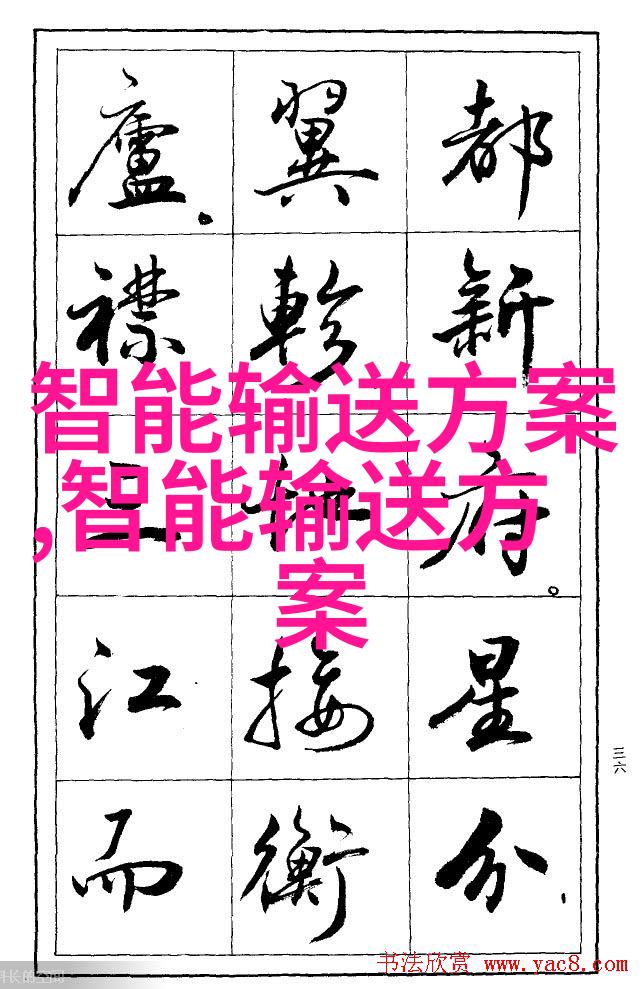 都新府。星分
翼軫接衡
廬。襟三江而
智能输送方案
,智能输送方
案
三六
书法欣赏 www.yac8.com
长的空间